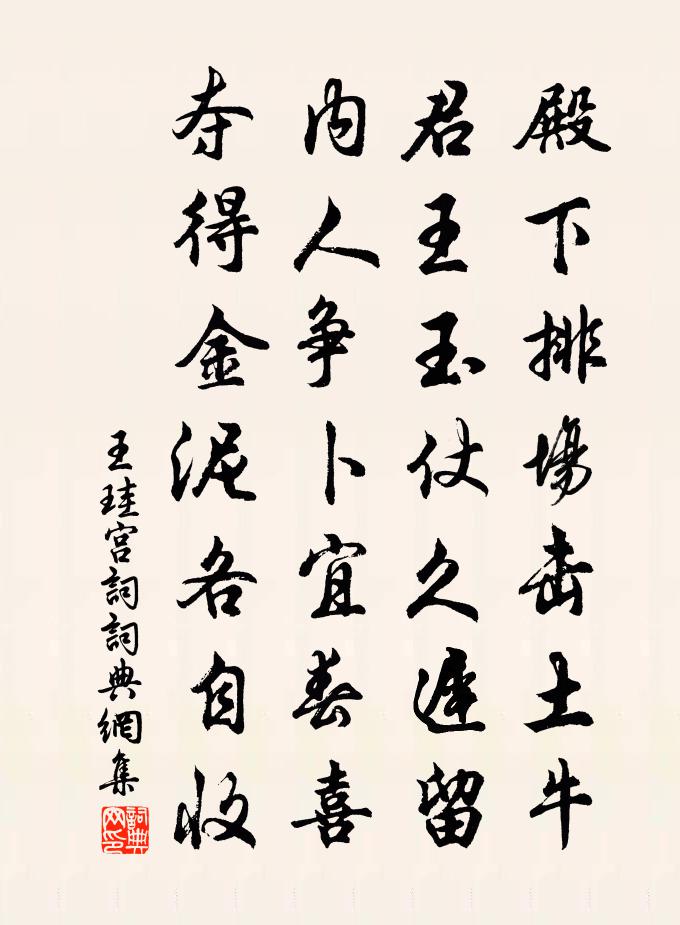 殿下排場击土牛
君王玉仗久遲留
内人争卜宜春喜
夺得金泥各自收
王珪宫詞詞典網集
詞典网印